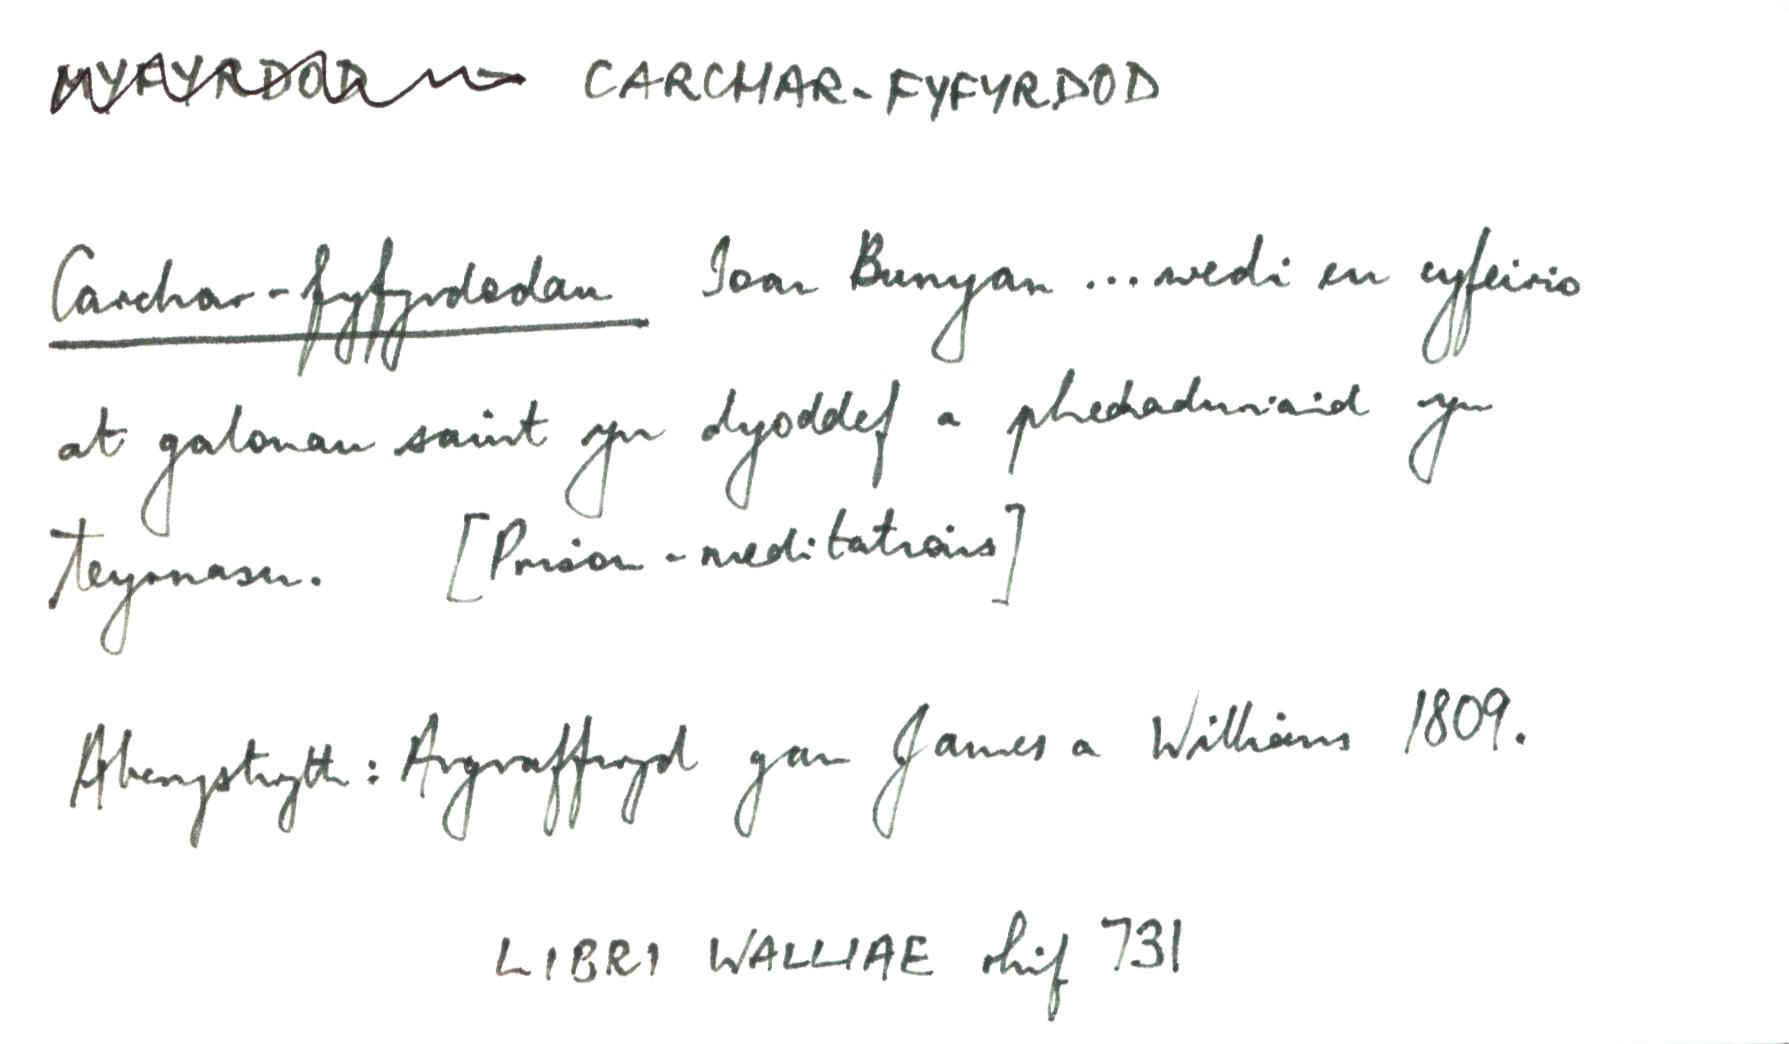 MYFYRDOD → CARCHAR-FYFYRDOD
Carchar-fyfyrdodau Ioan Bunyan ... wedi eu cyfeirio
at galonau saint yn dyoddef a phechaduriaid yn
teyrnasu. [Prison-meditations]
Aberystwyth: Argraffwyd gan James a Williams 1809.
LIBRI WALLIAE rhif 731